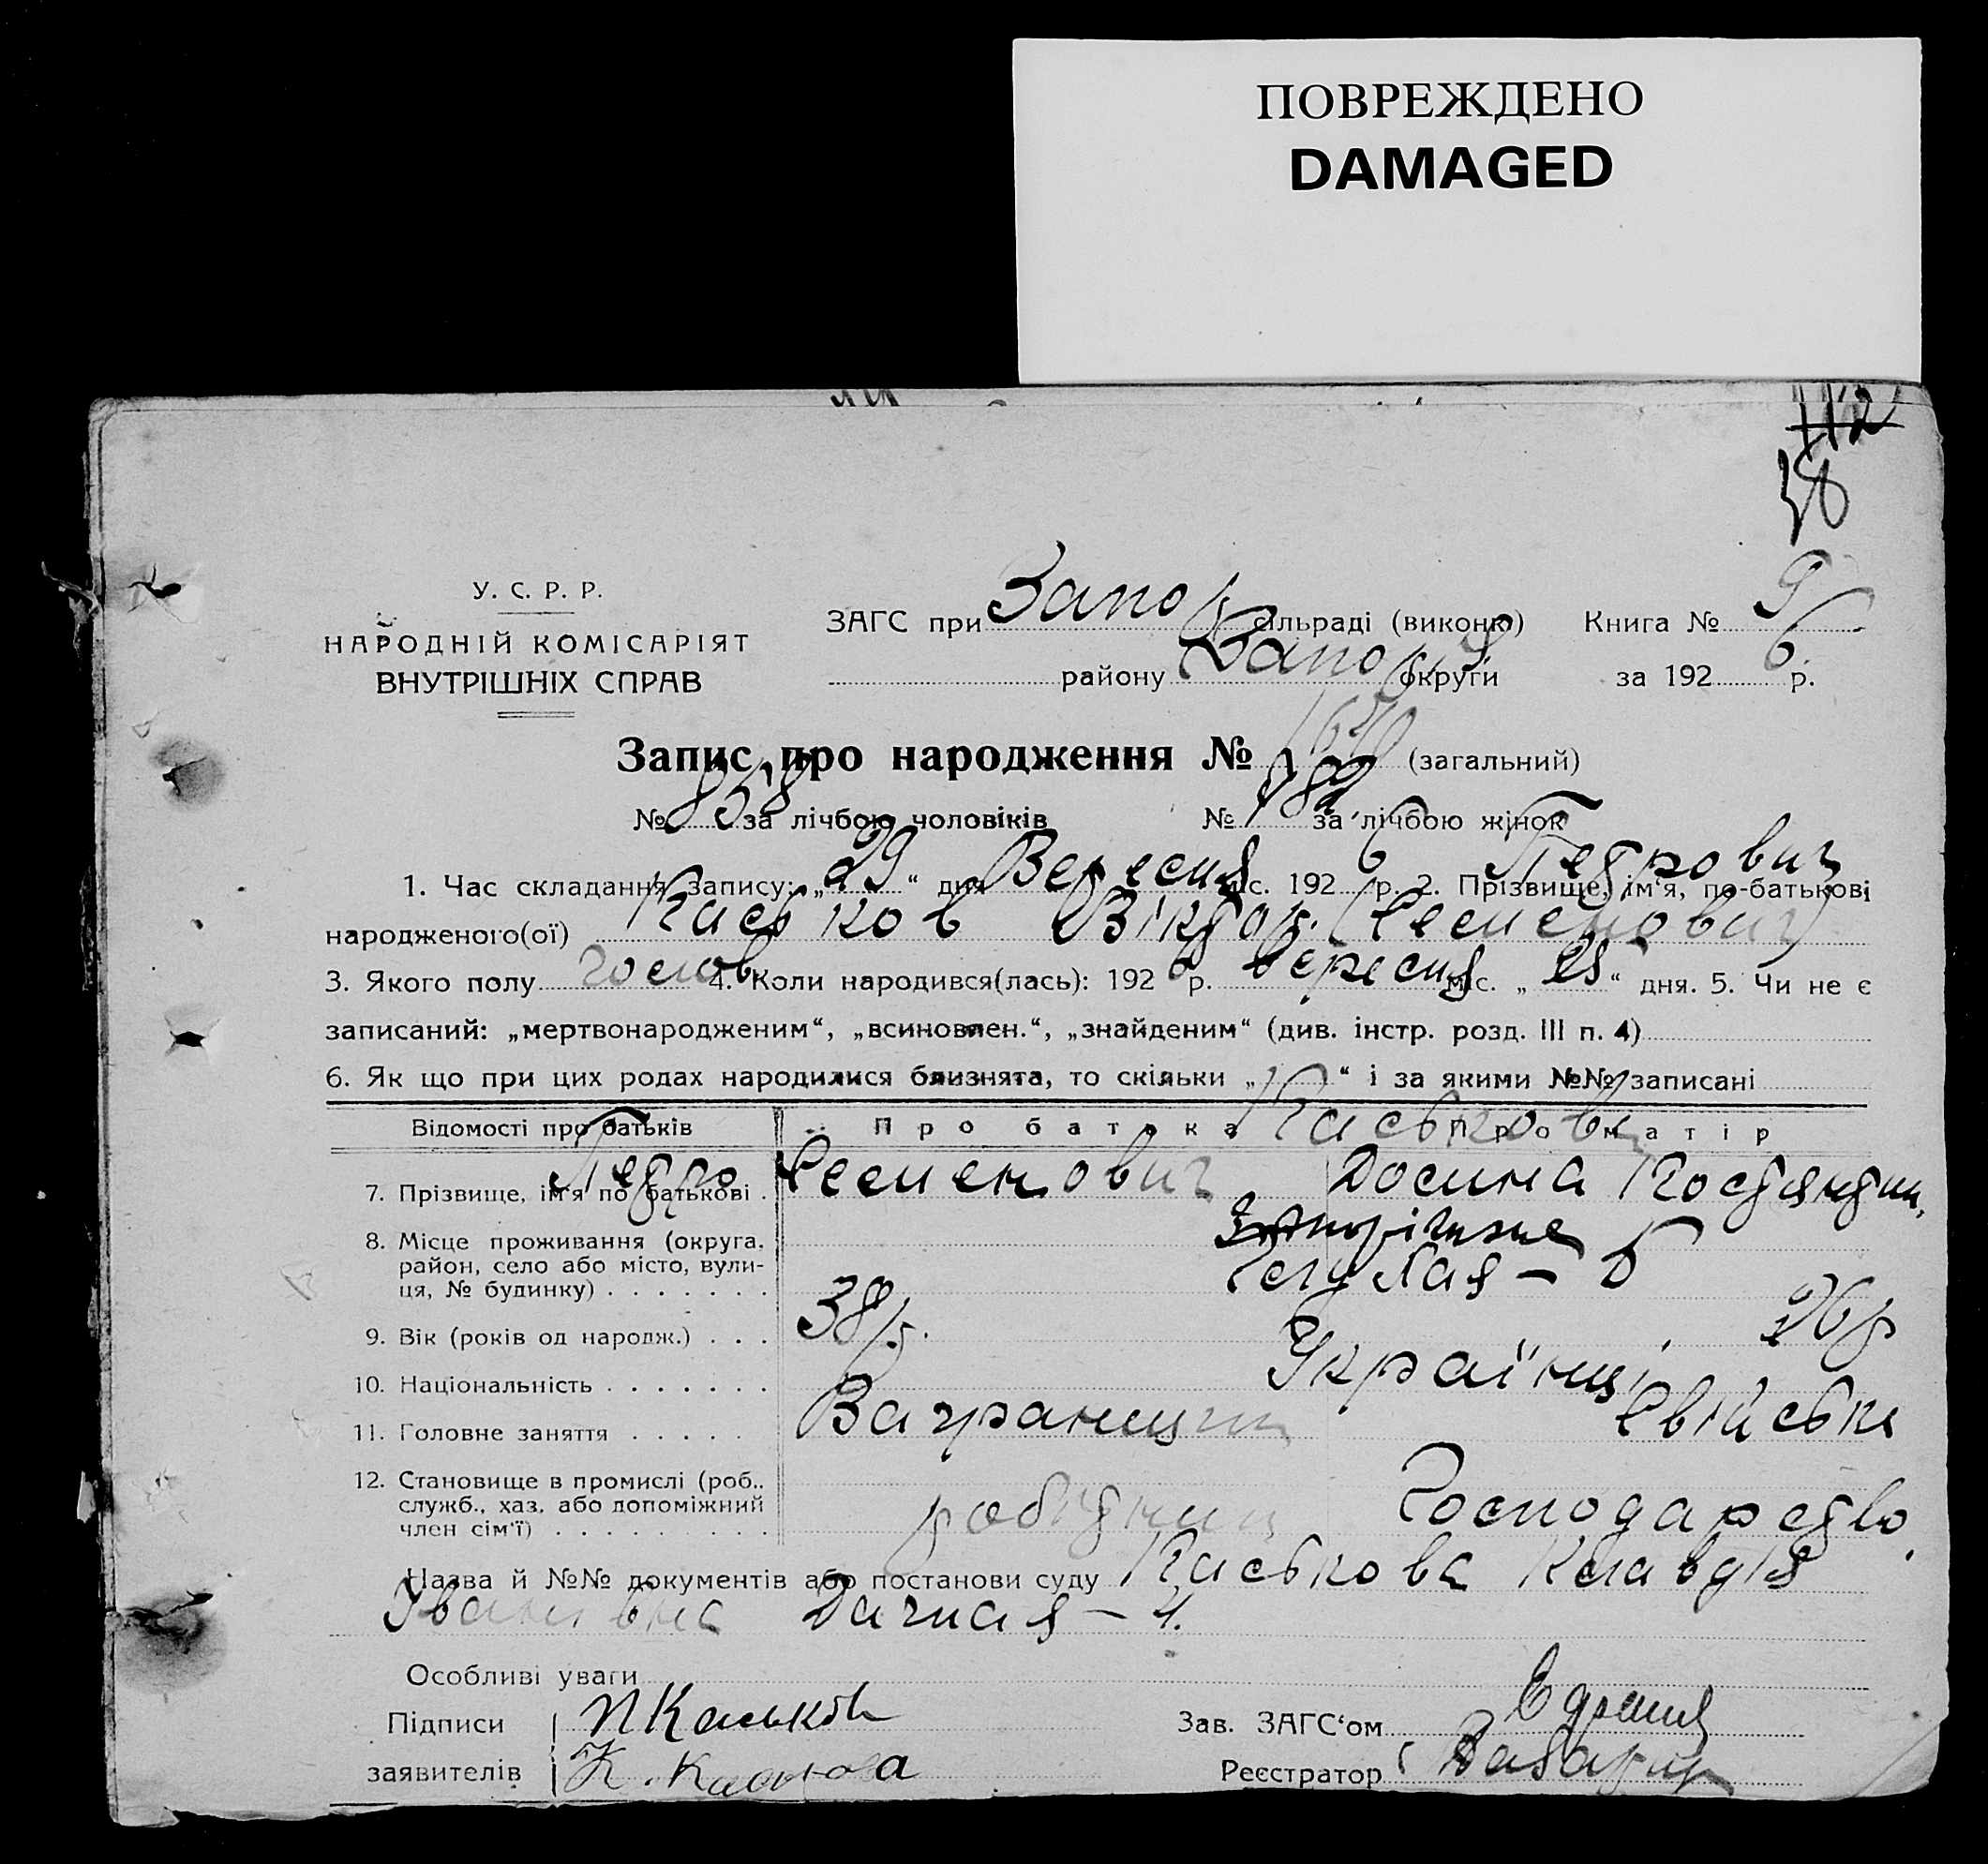 ПОВРЕЖДЕНО
DAMAGED
112
38
У. С. Р. Р.
НАРОДНІЙ КОМІСАРІЯТ
ВНУТРІШНІХ СПРАВ
ЗАГС при Запор сільраді (виконк) Книга № 9
району Запор округи за 1926 р.
Запис про народження № 1640 (загальний)
№ 858 за лічбою чоловіків № 782 за лічбою жінок
1. Час складання запису: „29“ дня Вересня міс. 1926 р. 2. Прізвище, ім'я, по-батькові Петрович
народженого(ої) Каськов Віктор (Семенович)
3. Якого полу чолов 4. Коли народився(лась): 1926 р. вересня міс. „28“ дня. 5. Чи не є
записаний: „мертвонародженим“, „всиновлен.“, „знайденим“ (див. інстр. розд. III п. 4)
6. Як що при цих родах народилися близнята, то скільки „ “ і за якими №№ записані
Відомості про батьків Про батька Про матір
Каськови
7. Прізвище, ім'я по батькові Петро Семенович Домна Костянтин.
8. Місце проживання (округа, район, село або місто, вулиця, № будинку) Запоріжже
9. Вік (років од народж.) 38 р. 26 р
10. Національність Українці
11. Головне заняття Вагранщик Свійське
12. Становище в промислі (роб., служб., хаз. або допоміжний член сім'ї) робітник Господарство
Назва й №№ документів або постанови суду Каськова Клавдія
Іванівна Дачная – 4.
Особливі уваги
Підписи П Каськов Зав. ЗАГС‘ом
заявителів К. Каськова Реєстратор